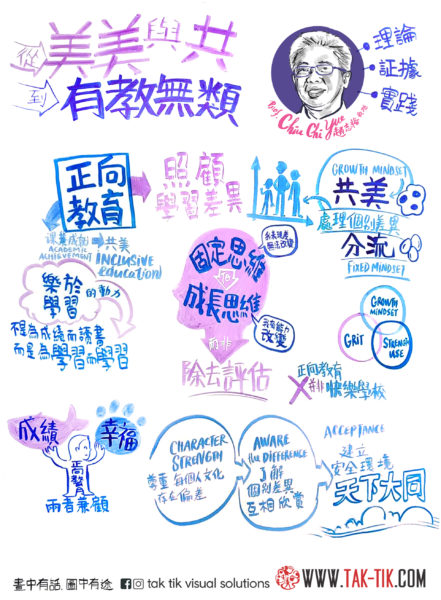 從美美與共
到有教無類
理論
証據
實踐
Prof. Chiu Chi Yue
正向
教育
照顧
學習差異
GROWTH MINDSET
共美
處理個別差異
分流
FIXED MINDSET
共美
ACADEMIC
ACHIEVEMENT
INCLUSIVE
education
樂於
學習
的動力
不是為成績而讀書
而是為學習而學習
固定思維
成長思維
我有能力
改變
而非
除去評估
GROWTH
MINDSET
GRIT
STRENGTH
USE
正向教育
並非快樂學校
成績
幸福
兩者兼顧
CHARACTER
STRENGTH
尊重每個人文化
存在偏差
AWARE
the DIFFERENCE
了解
個別差異
互相欣賞
ACCEPTANCE
建立
安全環境
天下大同
畫中有話，圖中有途
tak tik visual solutions
WWW.TAK-TIK.COM